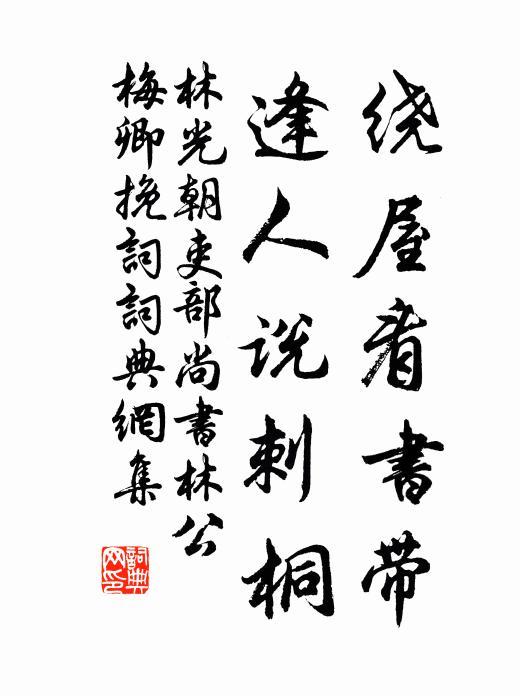 绕屋看書带
逢人说刺桐
林光朝吏部尚書林公
梅卿挽詞詞典網集
詞典
网印